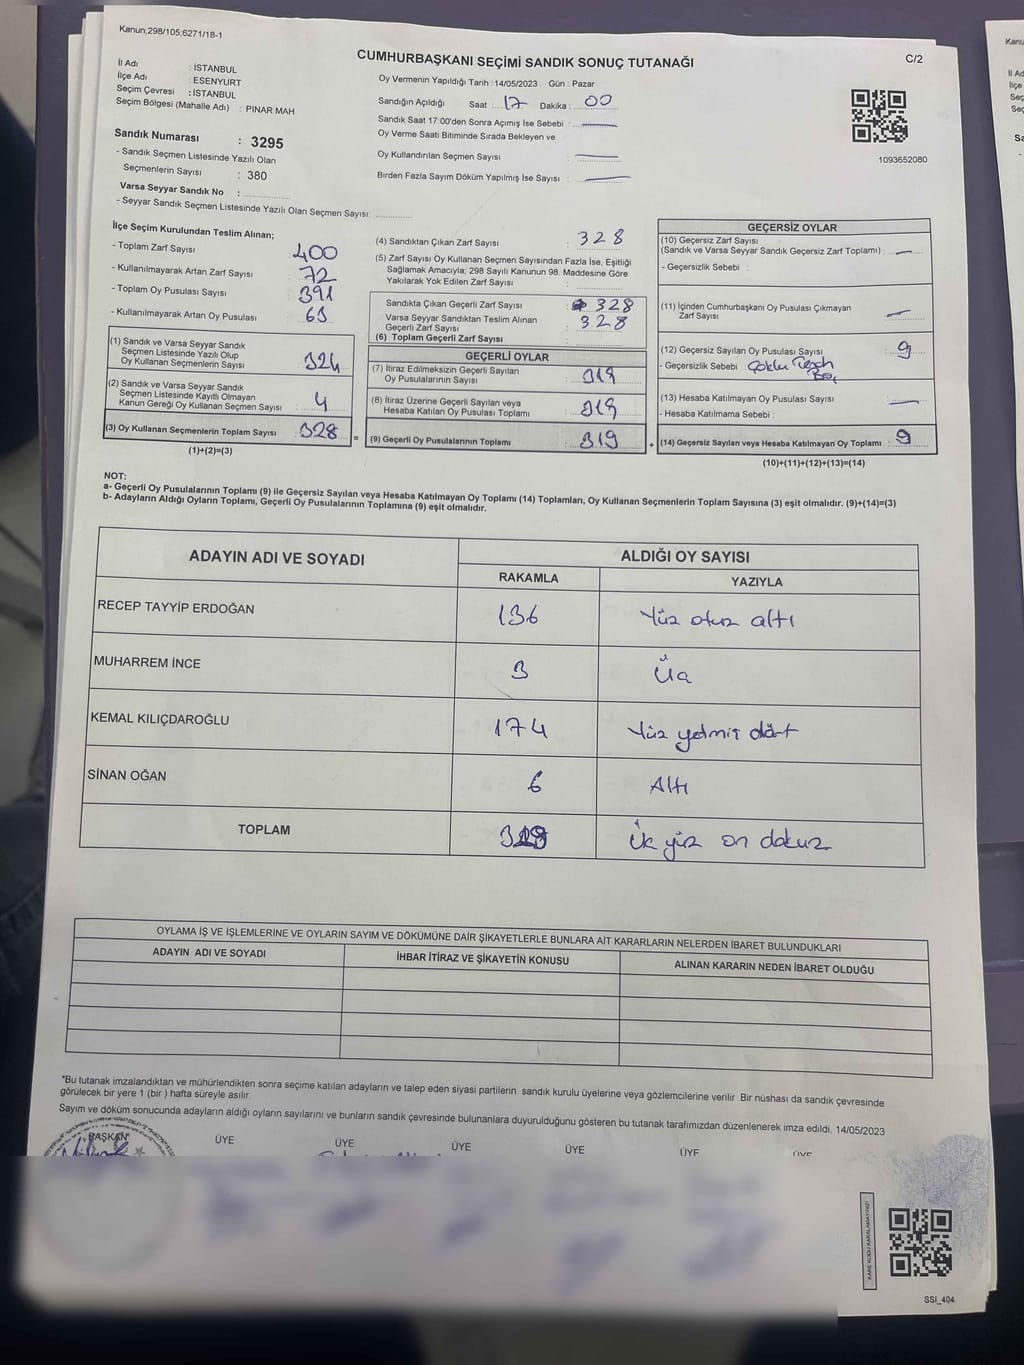 Kanun;298/105;6271/18-1
CUMHURBAŞKANI SEÇİMİ SANDIK SONUÇ TUTANAĞI
C/2
İl Adı : İSTANBUL
İlçe Adı : ESENYURT
Seçim Çevresi : İSTANBUL
Seçim Bölgesi (Mahalle Adı) : PINAR MAH
Sandık Numarası : 3295
- Sandık Seçmen Listesinde Yazılı Olan
Seçmenlerin Sayısı : 380
Varsa Seyyar Sandık No :
- Seyyar Sandık Seçmen Listesinde Yazılı Olan Seçmen Sayısı:
Oy Vermenin Yapıldığı Tarih : 14/05/2023 Gün : Pazar
Sandığın Açıldığı Saat : 17 Dakika : 00
Sandık Saat 17:00'den Sonra Açımış İse Sebebi :
Oy Verme Saati Bitiminde Sırada Bekleyen ve
Oy Kullandırılan Seçmen Sayısı :
Birden Fazla Sayım Döküm Yapılmış İse Sayısı :
1093652080
İlçe Seçim Kurulundan Teslim Alınan;
- Toplam Zarf Sayısı 400
- Kullanılmayarak Artan Zarf Sayısı 72
- Toplam Oy Pusulası Sayısı 391
- Kullanılmayarak Artan Oy Pusulası 63
(1) Sandık ve Varsa Seyyar Sandık
Seçmen Listesinde Yazılı Olup
Oy Kullanan Seçmenlerin Sayısı 324
(2) Sandık ve Varsa Seyyar Sandık
Seçmen Listesinde Kayıtlı Olmayan
Kanun Gereği Oy Kullanan Seçmen Sayısı 4
(3) Oy Kullanan Seçmenlerin Toplam Sayısı : 328
(1)+(2)=(3)
(4) Sandıktan Çıkan Zarf Sayısı : 328
(5) Zarf Sayısı Oy Kullanan Seçmen Sayısından Fazla İse, Eşitliği
Sağlamak Amacıyla; 298 Sayılı Kanunun 98. Maddesine Göre
Yakılarak Yok Edilen Zarf Sayısı :
Sandıkta Çıkan Geçerli Zarf Sayısı : 328
Varsa Seyyar Sandıktan Teslim Alınan
Geçerli Zarf Sayısı : 328
(6) Toplam Geçerli Zarf Sayısı :
GEÇERLİ OYLAR
(7) İtiraz Edilmeksizin Geçerli Sayılan
Oy Pusulalarının Sayısı : 319
(8) İtiraz Üzerine Geçerli Sayılan veya
Hesaba Katılan Oy Pusulası Toplamı : 319
(9) Geçerli Oy Pusulalarının Toplamı : 319
=
+
GEÇERSİZ OYLAR
(10) Geçersiz Zarf Sayısı
(Sandık ve Varsa Seyyar Sandık Geçersiz Zarf Toplamı) :
- Geçersizlik Sebebi :
(11) İçinden Cumhurbaşkanı Oy Pusulası Çıkmayan
Zarf Sayısı :
(12) Geçersiz Sayılan Oy Pusulası Sayısı : 9
- Geçersizlik Sebebi
(13) Hesaba Katılmayan Oy Pusulası Sayısı :
- Hesaba Katılmama Sebebi :
(14) Geçersiz Sayılan veya Hesaba Katılmayan Oy Toplamı : 9
(10)+(11)+(12)+(13)=(14)
NOT:
a- Geçerli Oy Pusulalarının Toplamı (9) ile Geçersiz Sayılan veya Hesaba Katılmayan Oy Toplamı (14) Toplamları, Oy Kullanan Seçmenlerin Toplam Sayısına (3) eşit olmalıdır. (9)+(14)=(3)
b- Adayların Aldığı Oyların Toplamı, Geçerli Oy Pusulalarının Toplamına (9) eşit olmalıdır.
ADAYIN ADI VE SOYADI ALDIĞI OY SAYISI
RAKAMLA YAZIYLA
RECEP TAYYİP ERDOĞAN 136 Yüz otuz altı
MUHARREM İNCE 3 Üç
KEMAL KILIÇDAROĞLU 174 Yüz yetmiş dört
SİNAN OĞAN 6 Altı
TOPLAM 319 Üç yüz on dokuz
OYLAMA İŞ VE İŞLEMLERİNE VE OYLARIN SAYIM VE DÖKÜMÜNE DAİR ŞİKAYETLERLE BUNLARA AİT KARARLARIN NELERDEN İBARET BULUNDUKLARI
ADAYIN ADI VE SOYADI İHBAR İTİRAZ VE ŞİKAYETİN KONUSU ALINAN KARARIN NEDEN İBARET OLDUĞU
*Bu tutanak imzalandıktan ve mühürlendikten sonra seçime katılan adayların ve talep eden siyasi partilerin sandık kurulu üyelerine veya gözlemcilerine verilir .Bir nüshası da sandık çevresinde
görülecek bir yere 1 (bir ) hafta süreyle asılır.
Sayım ve döküm sonucunda adayların aldığı oyların sayılarını ve bunların sandık çevresinde bulunanlara duyurulduğunu gösteren bu tutanak tarafımızdan düzenlenerek imza edildi. 14/05/2023
BAŞKAN ÜYE ÜYE ÜYE ÜYE ÜYE ÜYE
KARE KODU KARALAMAYINIZ!
SSI_404